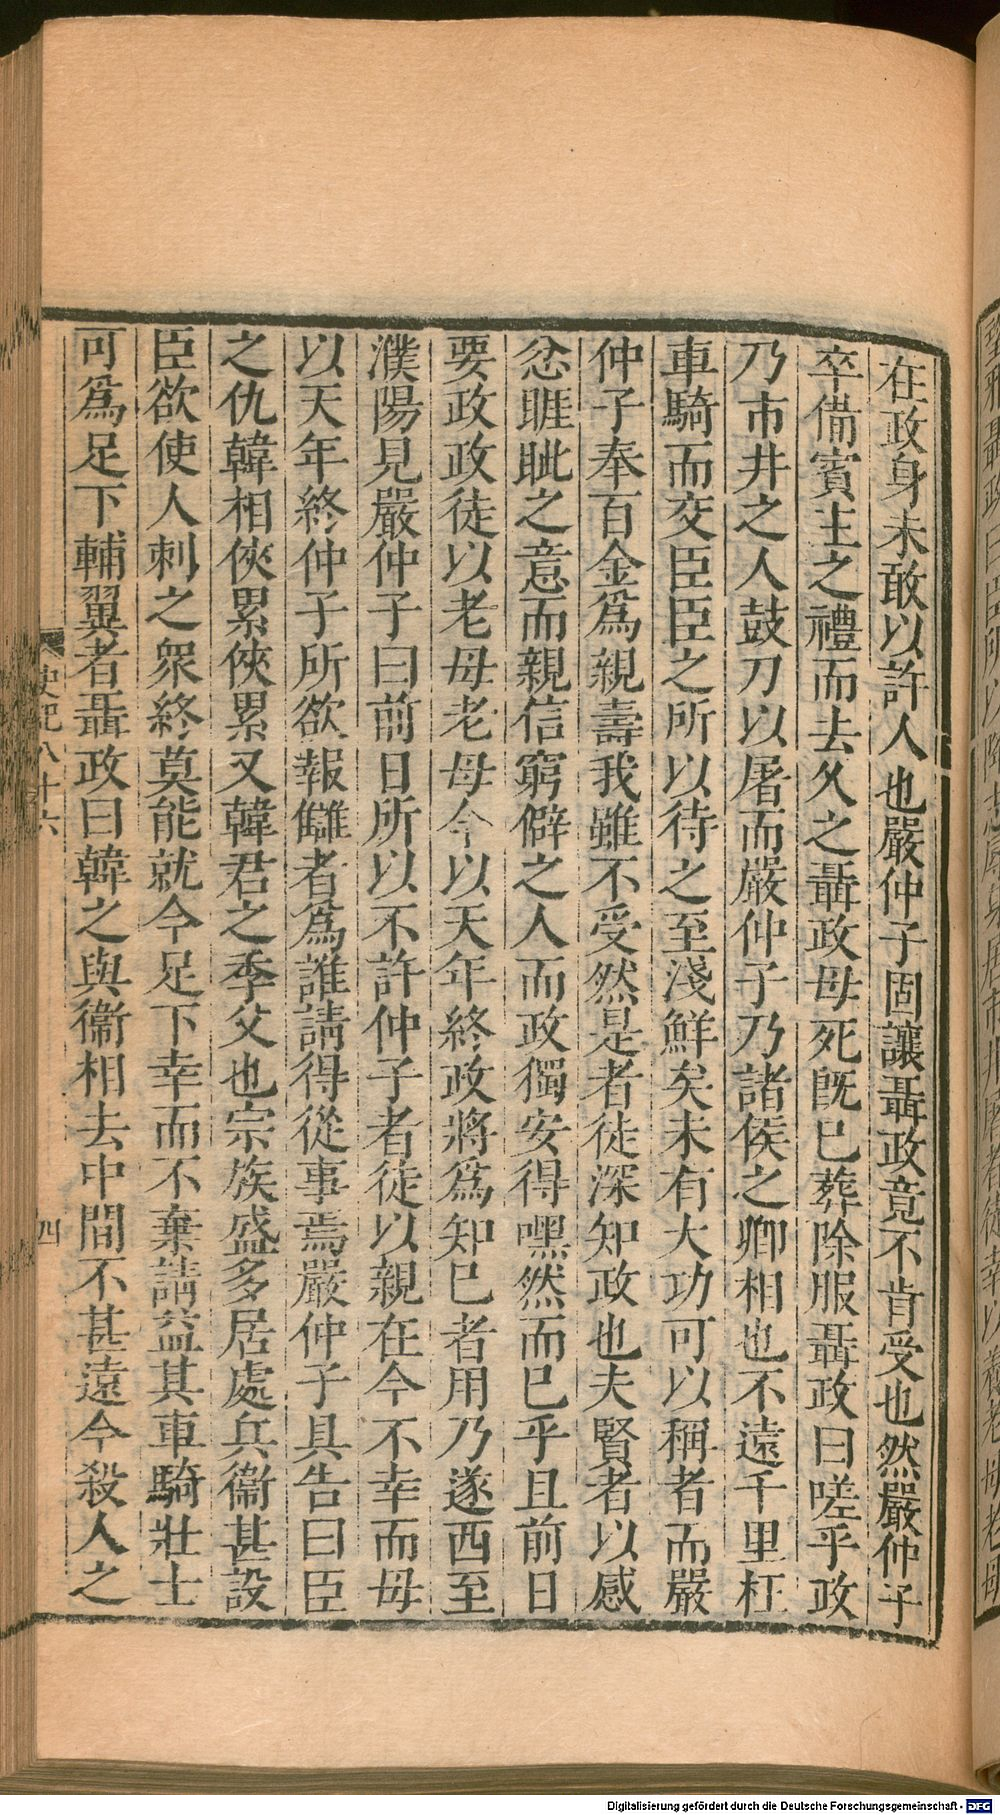 在政身未敢以許人也嚴仲子固讓聶政竟不肯受也然嚴仲子
卒備賓主之禮而去久之聶政母死旣已葬除服聶政曰嗟乎政
乃市井之人鼓刀以屠而嚴仲子乃諸侯之卿相也不遠千里枉
車騎而交臣臣之所以待之至淺鮮矣未有大功可以稱者而嚴
仲子奉百金爲親壽我雖不受然是者徒深知政也夫賢者以感
忿睚眦之意而親信窮僻之人而政獨安得嘿然而已乎且前日
要政政徒以老母老母今以天年終政將爲知已者用乃遂西至
濮陽見嚴仲子曰前日所以不許仲子者徒以親在今不幸而母
以天年終仲子所欲報讎者爲誰請得從事焉嚴仲子具告曰臣
之仇韓相俠累俠累又韓君之季父也宗族盛多居處兵衞甚設
臣欲使人刺之衆終莫能就今足下幸而不棄請益其車騎壯士
可爲足下輔翼者聶政曰韓之與衞相去中間不甚遠今殺人之
史記八十六
四
Digitalisierung gefördert durch die Deutsche Forschungsgemeinschaft - DFG